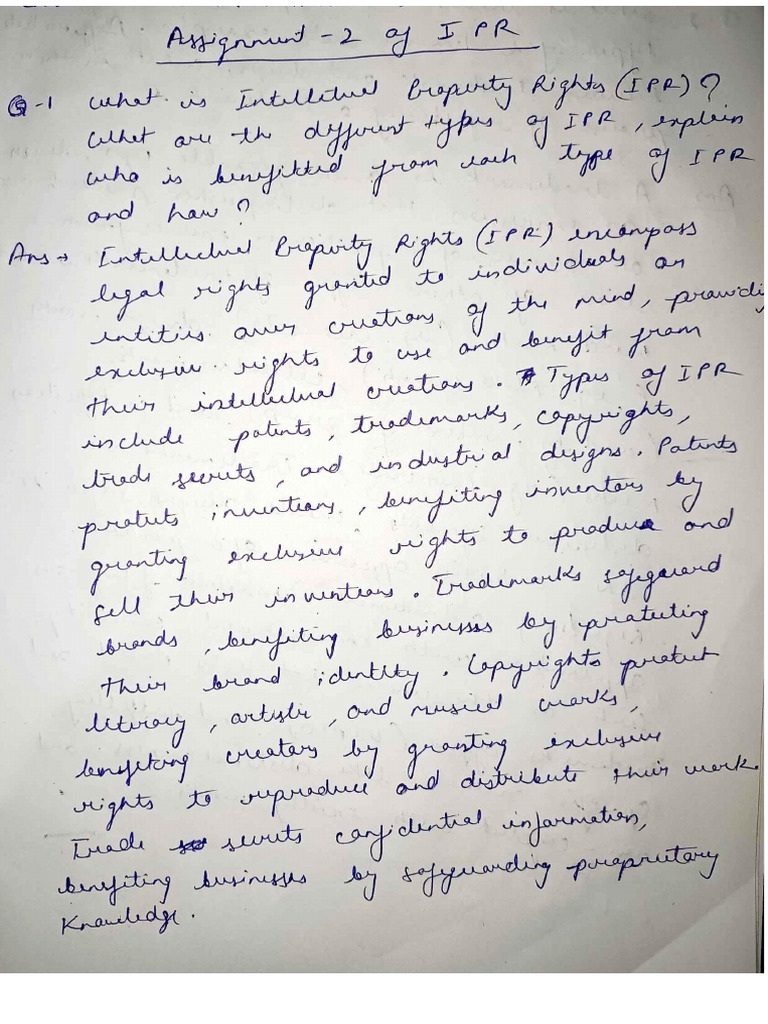 Assignment - 2 of IPR
Q-1 What is Intellectual Property Rights (IPR)?
What are the different types of IPR, explain
who is benefitted from each type of IPR
and how?
Ans → Intellectual Property Rights (IPR) encompass
legal rights granted to individuals or
entities over creations of the mind, providi
exclusive rights to use and benefit from
their intellectual creations. Types of IPR
include patents, trademarks, copyrights,
trade secrets, and industrial designs. Patents
protects inventions, benefiting inventors by
granting exclusive rights to produce and
sell their inventions. Trademarks safeguard
brands, benefiting businesses by protecting
their brand identity. Copyrights protect
literacy, artistic, and musical works,
benefiting creators by granting exclusive
rights to reproduce and distribute their work.
Trade secrets confidential information,
benefiting businesses by safeguarding proprietary
Knowledge.